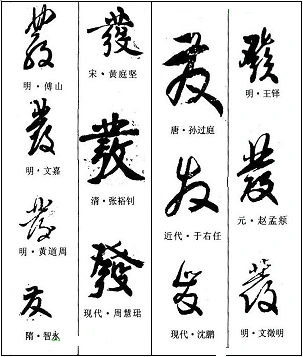 發
明·傅山
發
明·文嘉
發
明·黄道周
发
隋·智永
發
宋·黄庭坚
發
清·张裕钊
發
现代·周慧珺
发
唐·孙过庭
发
近代·于右任
发
现代·沈鹏
發
明·王铎
發
元·赵孟頫
發
明·文徵明